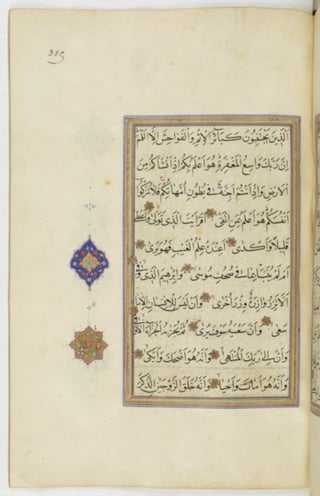 385
الَّذِينَ يَجْتَنِبُونَ كَبَائِرَ الْإِثْمِ وَالْفَوَاحِشَ إِلَّا اللَّمَمَ
إِنَّ رَبَّكَ وَاسِعُ الْمَغْفِرَةِ هُوَ أَعْلَمُ بِكُمْ إِذْ أَنْشَأَكُمْ مِنَ
الْأَرْضِ وَإِذْ أَنْتُمْ أَجِنَّةٌ فِي بُطُونِ أُمَّهَاتِكُمْ فَلَا تُزَكُّوا
أَنْفُسَكُمْ هُوَ أَعْلَمُ بِمَنِ اتَّقَى أَفَرَأَيْتَ الَّذِي تَوَلَّى وَأَعْطَى
قَلِيلًا وَأَكْدَى أَعِنْدَهُ عِلْمُ الْغَيْبِ فَهُوَ يَرَى
أَمْ لَمْ يُنَبَّأْ بِمَا فِي صُحُفِ مُوسَى وَإِبْرَاهِيمَ الَّذِي وَفَّى
أَلَّا تَزِرُ وَازِرَةٌ وِزْرَ أُخْرَى وَأَنْ لَيْسَ لِلْإِنْسَانِ إِلَّا مَا
سَعَى وَأَنَّ سَعْيَهُ سَوْفَ يُرَى ثُمَّ يُجْزَاهُ الْجَزَاءَ الْأَوْفَى
وَأَنَّ إِلَى رَبِّكَ الْمُنْتَهَى وَأَنَّهُ هُوَ أَضْحَكَ وَأَبْكَى
وَأَنَّهُ هُوَ أَمَاتَ وَأَحْيَا وَأَنَّهُ خَلَقَ الزَّوْجَيْنِ الذَّكَرَ